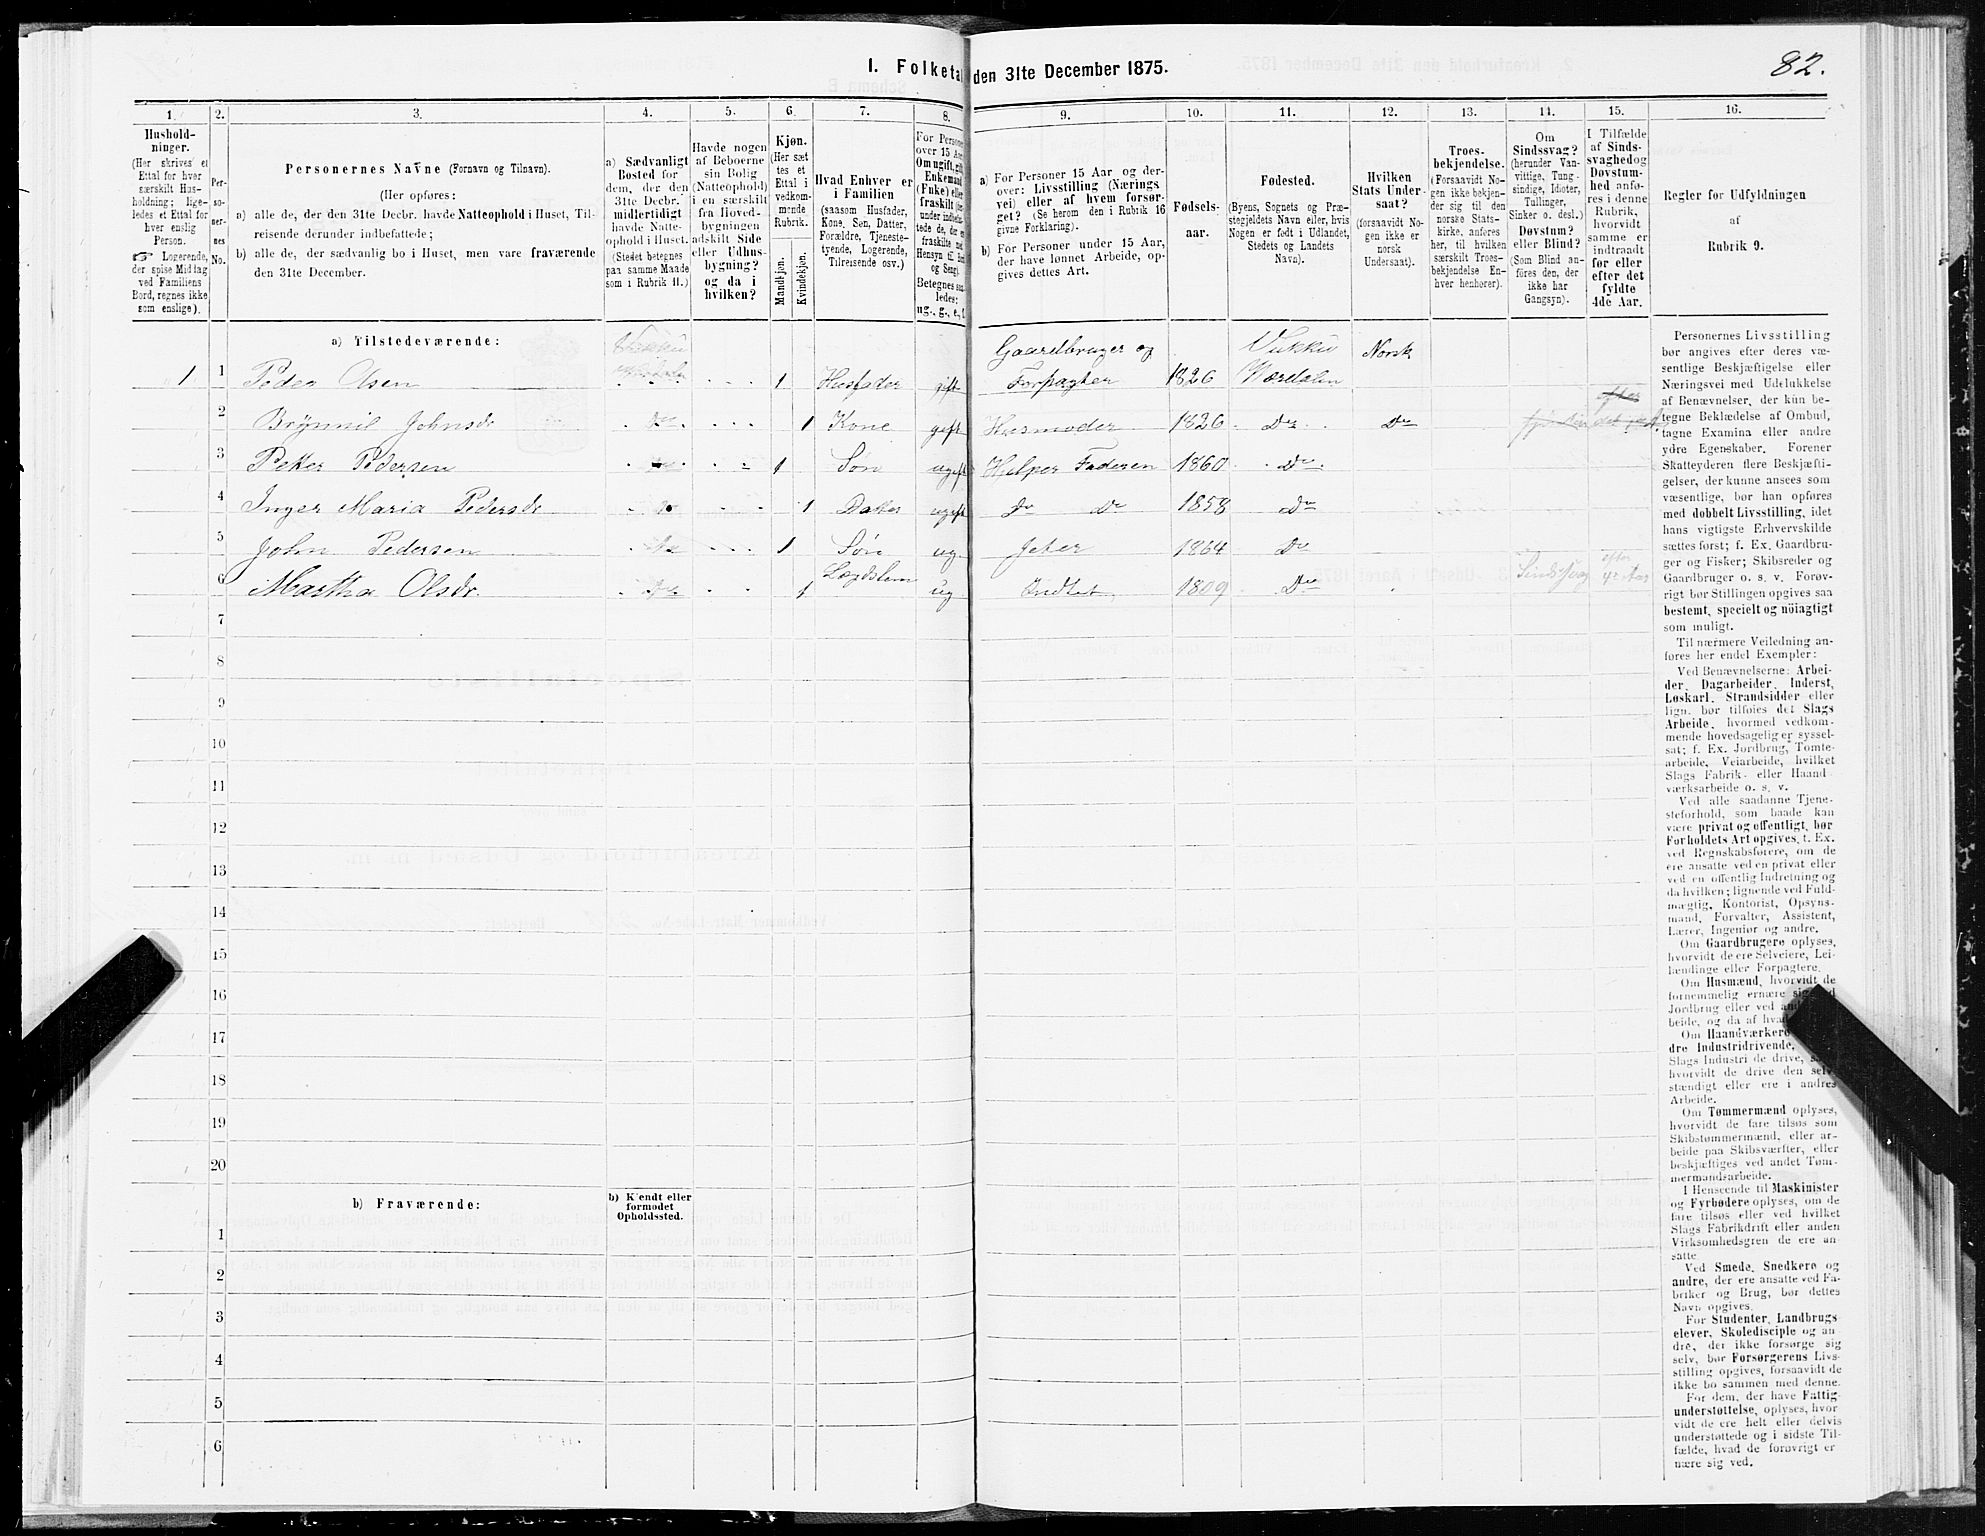 I. Folketal den 31te December 1875.
82.
1. 2. 3. 4. 5. 6. 7. 8. 9. 10. 11. 12. 13. 14. 15. 16.
Hushold-
ninger.
(Her skrives et
Ettal for hver
særskilt Hus-
holdning; lige-
ledes et Ettal for
hver enslig
Person.
☞ Logerende,
der spise Middag
ved Familiens
Bord, regnes ikke
som enslige).
Per-
so-
ner-
nes
No.
Personernes Navne (Fornavn og Tilnavn).
(Her opføres:
a) alle de, der den 31te Decbr. havde Natteophold i Huset, Til-
reisende derunder indbefattede;
b) alle de, der sædvanlig bo i Huset, men vare fraværende
den 31te December.
a) Sædvanligt
Bosted for
dem, der den
31te Decbr.
midlertidigt
havde Natte-
ophold i Huset.
(Stedet betegnes
paa samme Maade
som i Rubrik 11.)
Havde nogen
af Beboerne
sin Bolig
(Natteophold)
i en særskilt
fra Hoved-
bygningen
adskilt Side
eller Udhus-
bygning?
og da i
hvilken?
Kjøn.
(Her sæt-
tes et
Ettal i
vedkom-
mende
Rubrik.
Mandkjøn.
Kvindekjøn.
Hvad Enhver er
i Familien
(saasom Husfader,
Kone, Søn, Datter,
Forældre, Tjeneste-
tyende, Logerende,
Tilreisende osv.)
For Personer
over 15 Aar:
Om ugift, gift,
Enkemand
(Enke) eller
fraskilt
Betegnes saa-
ledes:
ug., g., e., f.
a) For Personer 15 Aar og der-
over: Livsstilling (Nærings-
vei) eller af hvem forsør-
get? (Se herom den i Rubrik 16
givne Forklaring).
b) For Personer under 15 Aar,
der have lønnet Arbeide, op-
gives dettes Art.
Fødsels-
aar.
Fødested.
(Byens, Sognets og Præ-
stegjeldets Navn eller, hvis
Nogen er født i Udlandet,
Stedets og Landets
Navn).
Hvilken
Stats Under-
saat?
(forsaavidt No-
gen ikke er
norsk
Undersaat).
Troes-
bekjendelse.
(Forsaavidt No-
gen ikke bekjen-
der sig til den
norske Stats-
kirke, anføres
her, til hvilken
særskilt Troes-
bekjendelse En-
hver henhører).
Om
Sindssvag?
(herunder Van-
vittige, Tung-
sindige, Idioter,
Tullinger,
Sinker o. desl.)
Døvstum?
eller Blind?
(Som Blind an-
føres den, der
ikke har
Gangsyn).
I Tilfælde
af Sinds-
svaghed og
Døvstum-
hed anfø-
res i denne
Rubrik,
hvorvidt
samme er
indtraadt
før eller
efter det
fyldte
4de Aar.
Regler for Udfyldningen
af
Rubrik 9.
a) Tilstedeværende:
1 1 Peder Olsen Vukku Værdalen 1 Husfader gift Gaardbruger og Forpagter 1826 Vukku Værdalen Norsk
2 Brynnil Johnsdr Do 1 Kone gift Husmoder 1826 Do Do
3 Petter Pedersen Do 1 Søn ugift Hjelper Faderen 1860 Do
4 Inger Maria Pedersdr Do 1 Datter ugift Do Do 1858 Do
5 John Pedersen Do 1 Søn ug Jeter 1864 Do
6 Martha Olsdr. Do 1 Lægdslem ug Indlet 1809 Do Sindssvag efter 4de Aar
7
8
9
10
11
12
13
14
15
16
17
18
19
20
b) Fraværende:
b) Kjendt eller
formodet
Opholdssted.
1
2
3
4
5
6
Personernes Livsstilling
bør angives efter deres væ-
sentlige Beskjæftigelse eller
Næringsvei med Udelukkelse
af Benævnelser, der kun be-
tegne Beklædelse af Ombud,
tagne Examina eller andre
ydre Egenskaber. Forener
Skatteyderen flere Beskjæfti-
gelser, der kunne ansees som
væsentlige, bør han opføres
med dobbelt Livsstilling, idet
hans vigtigste Erhvervskilde
sættes først; f. Ex. Gaardbru-
ger og Fisker; Skibsreder og
Gaardbruger o. s. v. Forøv-
rigt bør Stillingen opgives saa
bestemt, specielt og nöiagtigt
som muligt.
Til nærmere Veiledning an-
føres her endel Exempler:
Ved Benævnelserne: Arbei-
der, Dagarbeider, Inderst,
Løskarl, Strandsidder eller
lign. bør tilføies det Slags
Arbeide, hvormed vedkom-
mende hovedsagelig er syssel-
sat; f. Ex. Jordbrug, Tomte-
arbeide, Veiarbeide, hvilket
Slags Fabrik- eller Haand-
værksarbeide o. s. v.
Ved alle saadanne Tjene-
steforhold, som baade kan
være privat og offentligt, bør
Forholdets Art opgives, t. Ex.
ved Regnskabsførere, om de
ere ansatte ved en privat eller
ved en offentlig Indretning og
da hvilken; lignende ved Fuld-
mægtig, Kontorist, Opsyns-
mand, Forvalter, Assistent,
Lærer, Ingeniør og andre.
Om Gaardbrugere oplyses,
hvorvidt de ere Selveiere, Lei-
lændinge eller Forpagtere.
Om Husmænd, hvorvidt de
fornemmelig ernære sig ved
Jordbrug eller ved andet
beide, og da af hvad
Om Haandværkere
dre Industridrivende,
Slags Industri de drive, samt
hvorvidt de drive den selv-
stændigt eller ere i andres
Arbeide.
Om Tømmermænd oplyses,
hvorvidt de fare tilsøs som
Skibstømmermænd, eller ar-
beide paa Skibsværfter, eller
beskjæftiges ved andet Tøm-
mermandsarbeide.
I Henseende til Maskinister
og Fyrbødere oplyses, om de
fare tilsøs eller ved hvilket
Slags Fabrikdrift eller anden
Virksomhedsgren de ere an-
satte.
Ved Smede, Snedkere og
andre, der ere ansatte ved Fa-
briker og Brug, bør dettes
Navn opgives.
For Studenter, Landbrugs-
elever, Skoledisciple og an-
dre, der ikke forsørge sig
selv, bør Forsørgerens Livs-
stilling opgives, forsaavidt de
ikke bo sammen med denne.
For dem, der have Fattig-
understøttelse, oplyses, hvor-
vidt de ere helt eller delvis
understøttede og i sidste Til-
fælde, hvad de forøvrigt er-
nære sig ved.